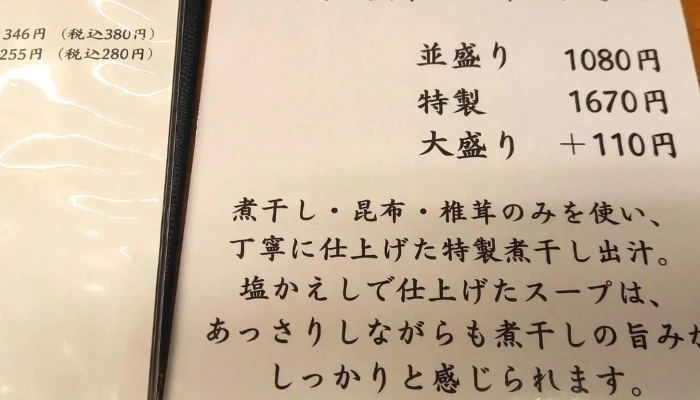 346円 （税込380円）
255円 （税込280円）
並盛り 1080円
特製 1670円
大盛り ＋110円
煮干し・昆布・椎茸のみを使い、
丁寧に仕上げた特製煮干し出汁。
塩かえしで仕上げたスープは、
あっさりしながらも煮干しの旨みが
しっかりと感じられます。